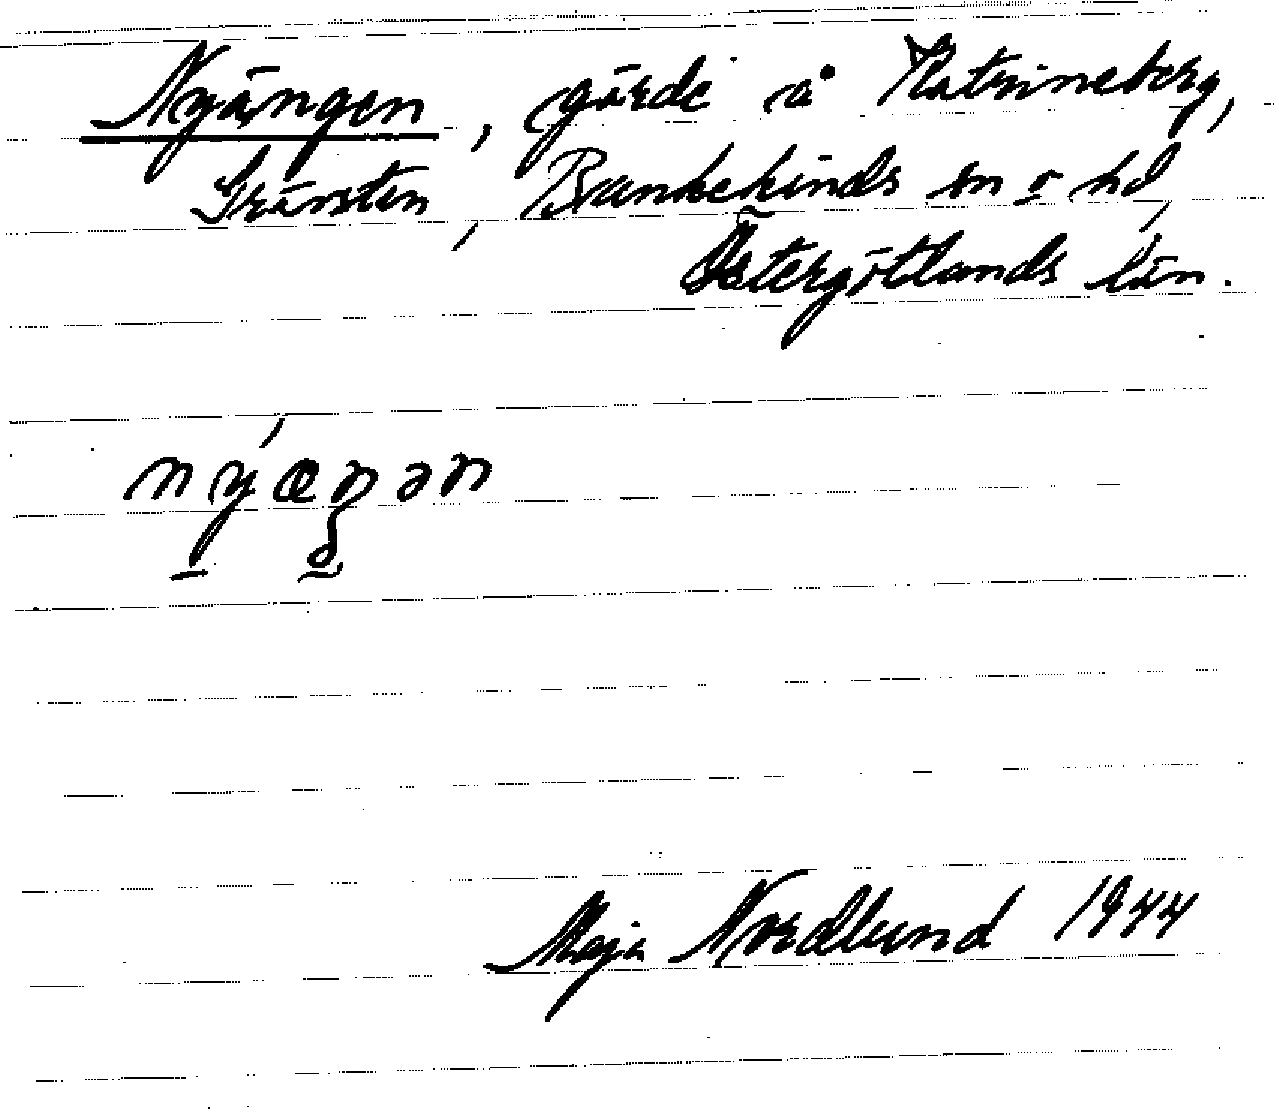 Nyängen, gärde å Katrineberg,
Gränsten, Bankekinds sn o hd,
Östergötlands län.
nýæŋən
Maja Nordlund 1944